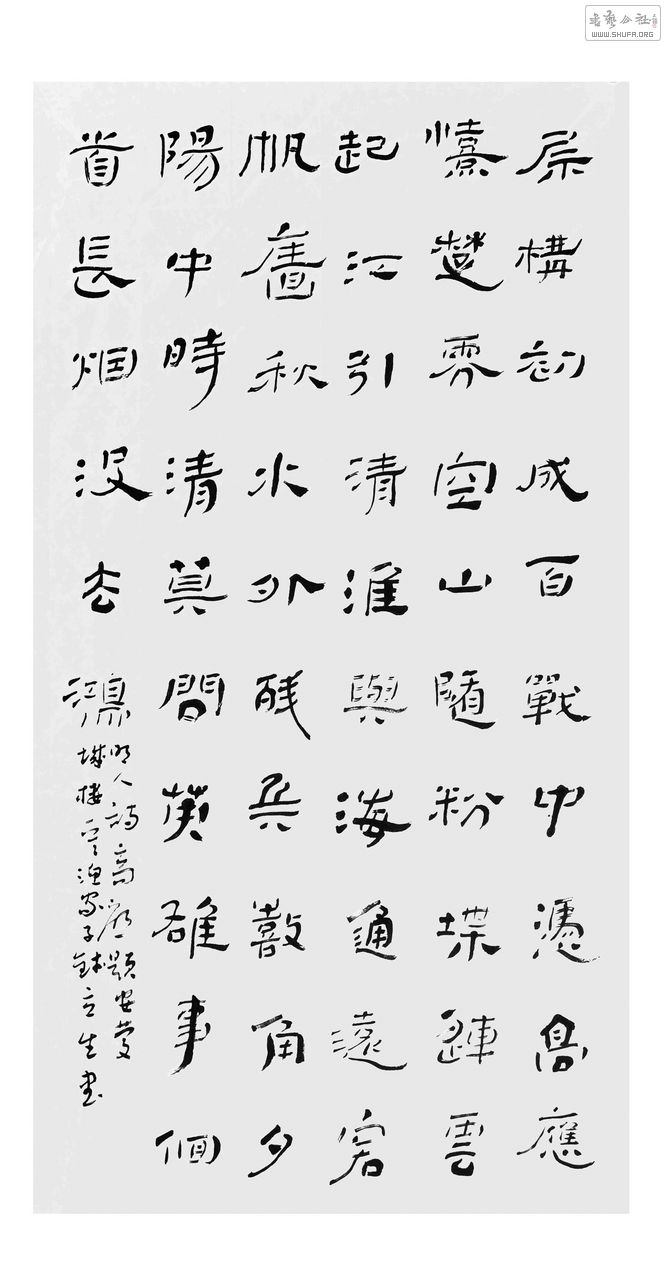 书艺公社
WWW.SHUFA.ORG
層構初成百戰中憑高應
憘楚雰空山隨粉堞連雲
起江引清淮與海通遠客
帆廧秋水外残兵鼓角夕
陽中時清莫問英雄事佪
首長烟没去鴻
明人詩高啟題安慶
城樓漁家子立生書